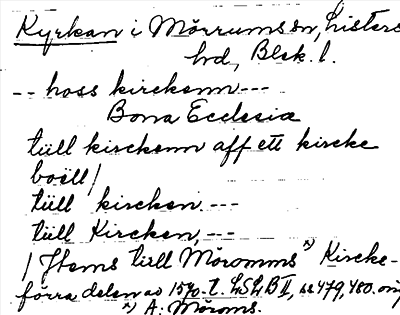 Kyrkan i Mörrums sn, Listers
hd, Blek. l.
-- hoss kirckenn ---
Bona Ecclesia
tüll kirckenn aff ett kircke
boëll /
tüll kircken. ---
tüll Kircken, ---
/ Jtems tüll Möromms *) Kircke-
förra delen av 1570-t. LSLB II, ss 479, 480. orig
*) A: Möroms.